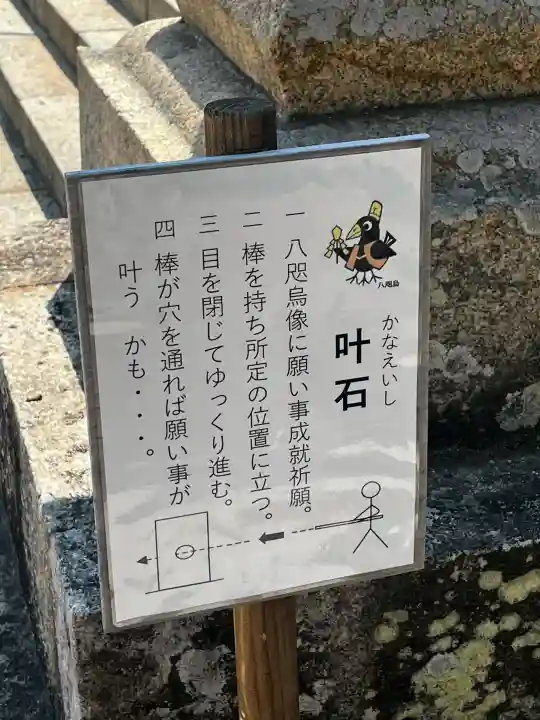 八咫烏
かなえいし
叶石
一 八咫烏像に願い事成就祈願。
二 棒を持ち所定の位置に立つ。
三 目を閉じてゆっくり進む。
四 棒が穴を通れば願い事が
叶う かも・・・。